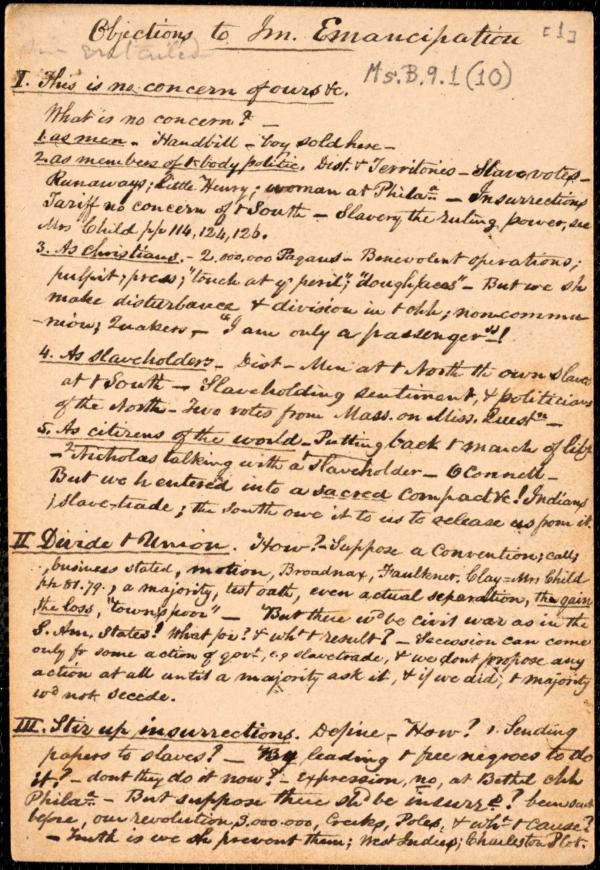 Objections to Im. Emancipation [1]
Ms. B. 9. 1 (10)
I. This is no concern of ours &c.
What is no concern? —
1. as men — Handbill — boy sold here —
2. as members of t body politic. Dist. & Territories — Slave votes —
Runaways; Little Henry; woman at Phila — Insurrections
Tariff no concern of t South — Slavery the ruling power, see
Mrs Child pp 114, 124, 126.
3. As Christians. — 2,000,000 Pagans — Benevolent operations;
pulpit; press; "touch at yr peril"; "doughfaces" — But we sh
make disturbance & division in t chh; non-commu-
-nion; Quakers — "I am only a passenger"!
4. As slaveholders — Dist — Men at t North tht own slaves
at t South — Slaveholding sentiment, & politicians
of the North — Two votes from Mass. on Miss. Questn —
5. As citizens of the world — Putting back t march of liby
— Nicholas talking with a slaveholder — O Connell —
But we h entered into a sacred compact &c! Indians
; slave-trade; the South owe it to us to release us from it.
II Divide t Union. How? — Suppose a Convention; call;
business stated, motion, Broadnax, Faulkner, Clay — Mrs Child
pp 81. 79.; a majority, test oath, even actual separation, the gain
the loss, "town's poor" — "But there wd be civil war as in the
S. Am. States! What for? & wht t result? — Secession can come
only fr some action of govt, e.g slavetrade, & we dont propose any
action at all until a majority ask it, & if we did, t majority
wd not secede.
III. Stir up insurrections. Define — How? 1. Sending
papers to slaves? — By leading t free negroes to do
it? — dont they do it now? — Expression, no, at Bethel chh
Phila — But suppose there shd be insurr? been such
before, our revolution, 3,000.000, Creeks, Poles, & wht t cause?
— Truth is we sh prevent them; West Indies; Charleston Plot.